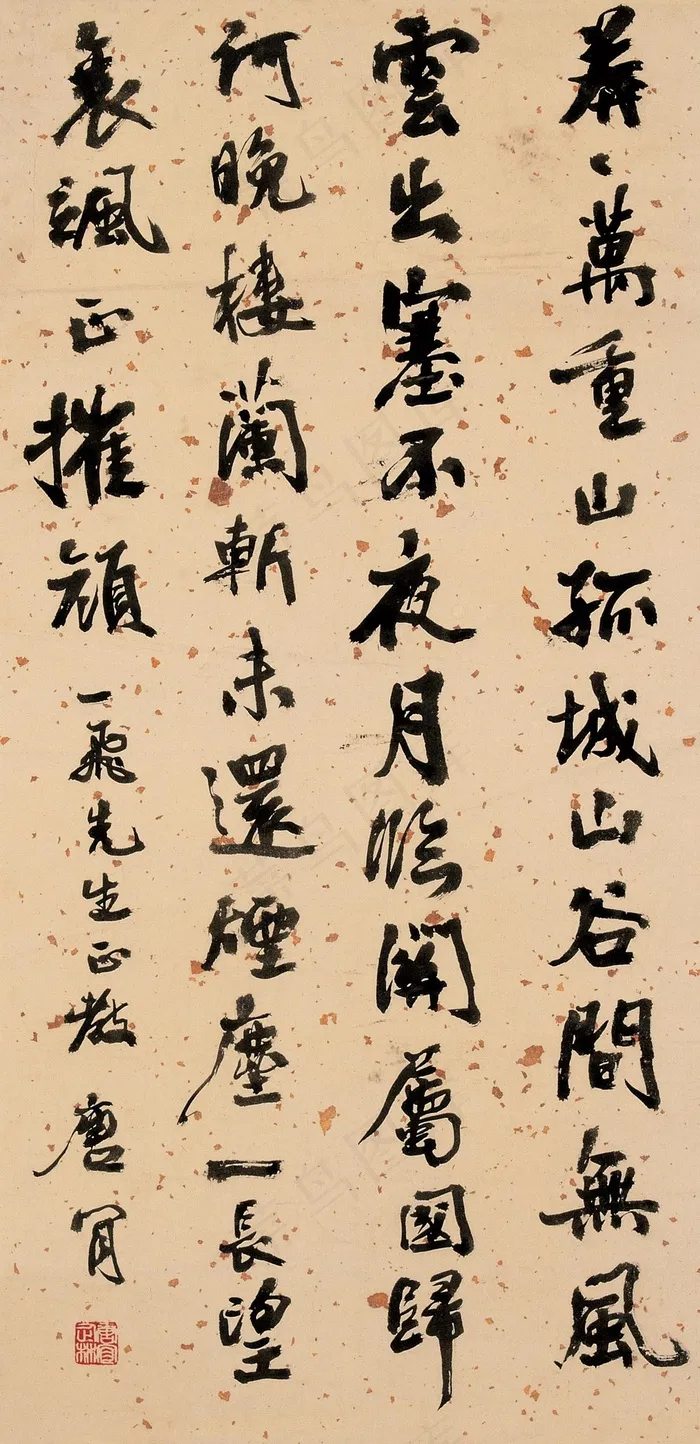 莽〻萬重山孤城山谷間無風
雲出塞不夜月臨關屬國歸
何晚樓蘭斬未還煙塵一長望
衰颯正摧顏 一飛先生正教 唐肎